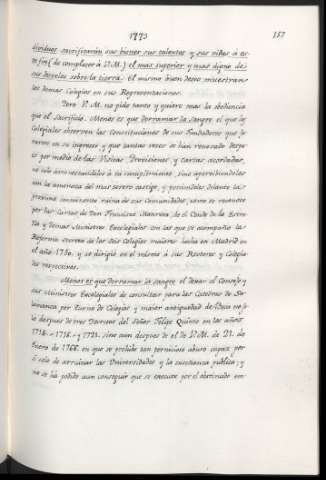 1773
157
dividuos sacrificarán sus bienes sus talentos y sus vidas á es-
te fin (de complacer á V.M.) el mas superior y mas digno de
sus desvelos sobre la tierra. El mismo buen deseo muestran
los demas Colegios en sus Representaciones.
Pero V.M. no pide tanto y quiere mas la obediencia
que el Sacrificio. Menos es que derramar la sangre el que los
Colegiales observen las Constituciones de sus Fundadores que ju-
raron en su ingreso, y que tantas veces se han renovado despu-
es por medio de las Visitas Provisiones y Cartas acordadas,
no solo para su cumplimiento, sino apercibiendoles
con la amenaza del mas severo castigo, y poniendoles delante la
proxima consiguiente ruina de sus Comunidades, como se reconoce
por las Cartas de Don Francisco de el Conde de la Este-
va y demas Ministros Escolegiales con las que se acompaño la
Reforma secreta de los seis Colegios mayores hecha en Madrid en
el año 1750, y se dirigió en el mismo á sus Rectores y Colegia-
les respectivos.
Menos es que derramar la sangre el dexar el Consejo y
sus Ministros Escolegiales de consultar para las Catedras de Sa-
lamanca por turno de Colegios y mayor antiguedad de no só-
lo despues de tres Decretos del Señor Felipe Quinto en los años
1714 - 1716 - y 1721. sino aun despues de el de V.M. de 21. de
Enero de 1766. en que se prohibe tan pernicioso abuso capaz por
si solo de arruinar las Universidades y la enseñanza publica; y
no se ha podido aun conseguir que se execute por el obstinado em-